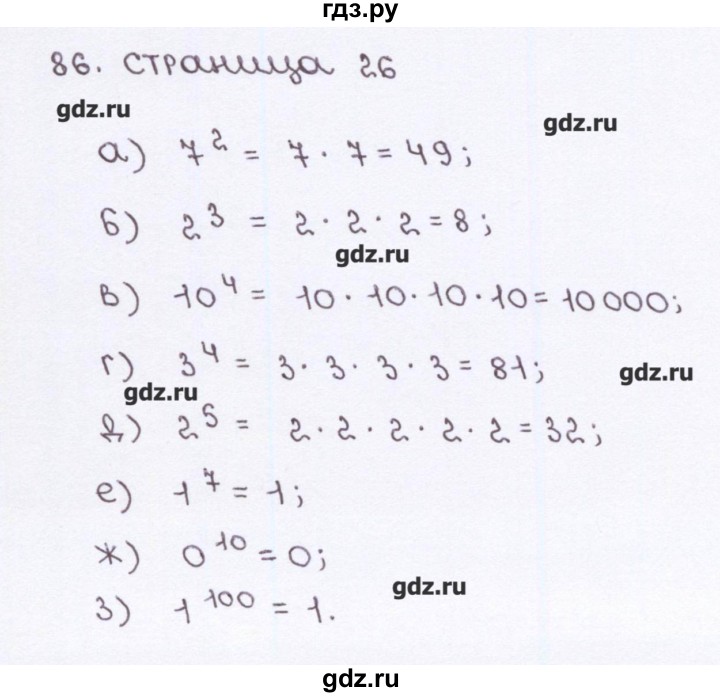 гдз.ру
86. страница 26
gdz.ru
gdz.ru
а) 7² = 7 · 7 = 49;
б) 2³ = 2 · 2 · 2 = 8;
gdz.ru
в) 10⁴ = 10 · 10 · 10 · 10 = 10 000;
г) 3⁴ = 3 · 3 · 3 · 3 = 81;
gdz.ru
gdz.ru
д) 2⁵ = 2 · 2 · 2 · 2 · 2 = 32;
е) 1⁷ = 1;
ж) 0¹⁰ = 0;
gdz.ru
з) 1¹⁰⁰ = 1.
gdz.ru